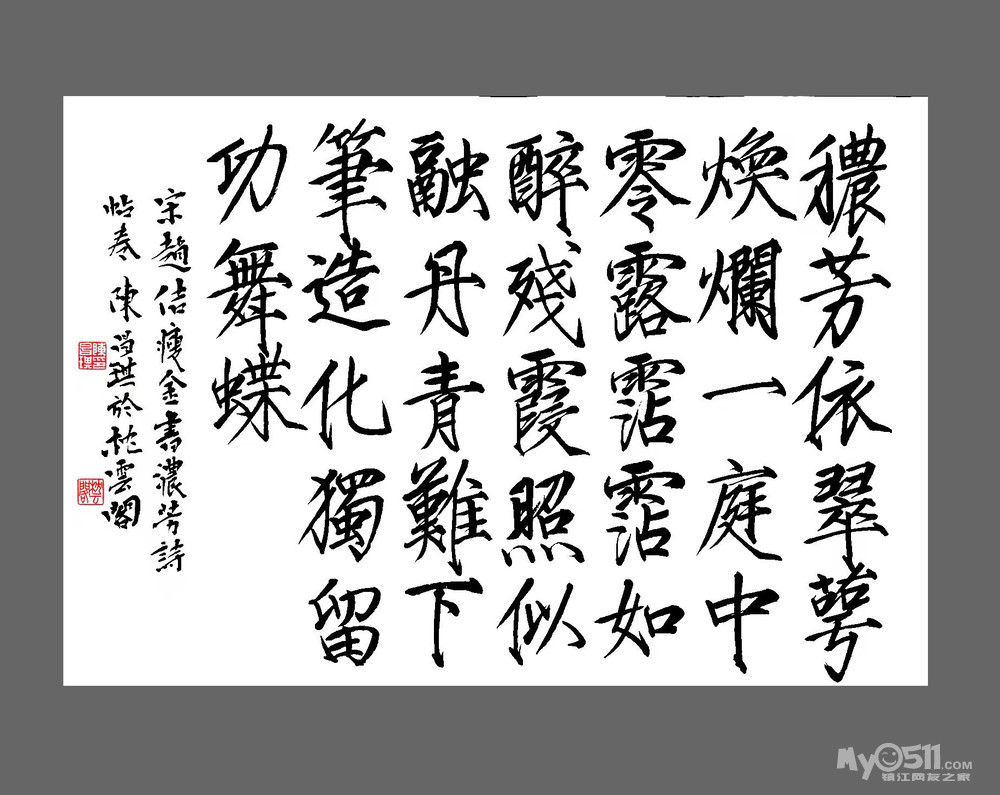 穠芳依翠萼
煥爛一庭中
零露霑霑如
醉殘霞照似
融丹青難下
筆造化獨留
功舞蝶
宋趙佶瘦金書濃芳詩
帖 陳琪於枕雲閣
My0511.COM
镇江网友之家